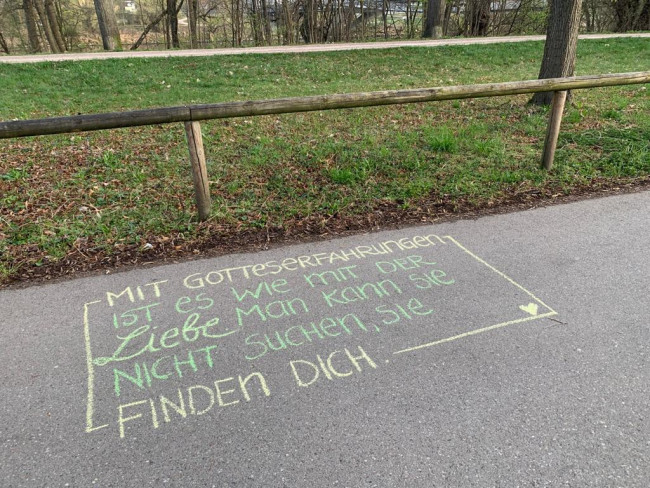 MIT GOTTESERFAHRUNGEN
IST ES WIE MIT DER
Liebe Man kann sie
NICHT SUCHEN, SIE
FINDEN DICH.